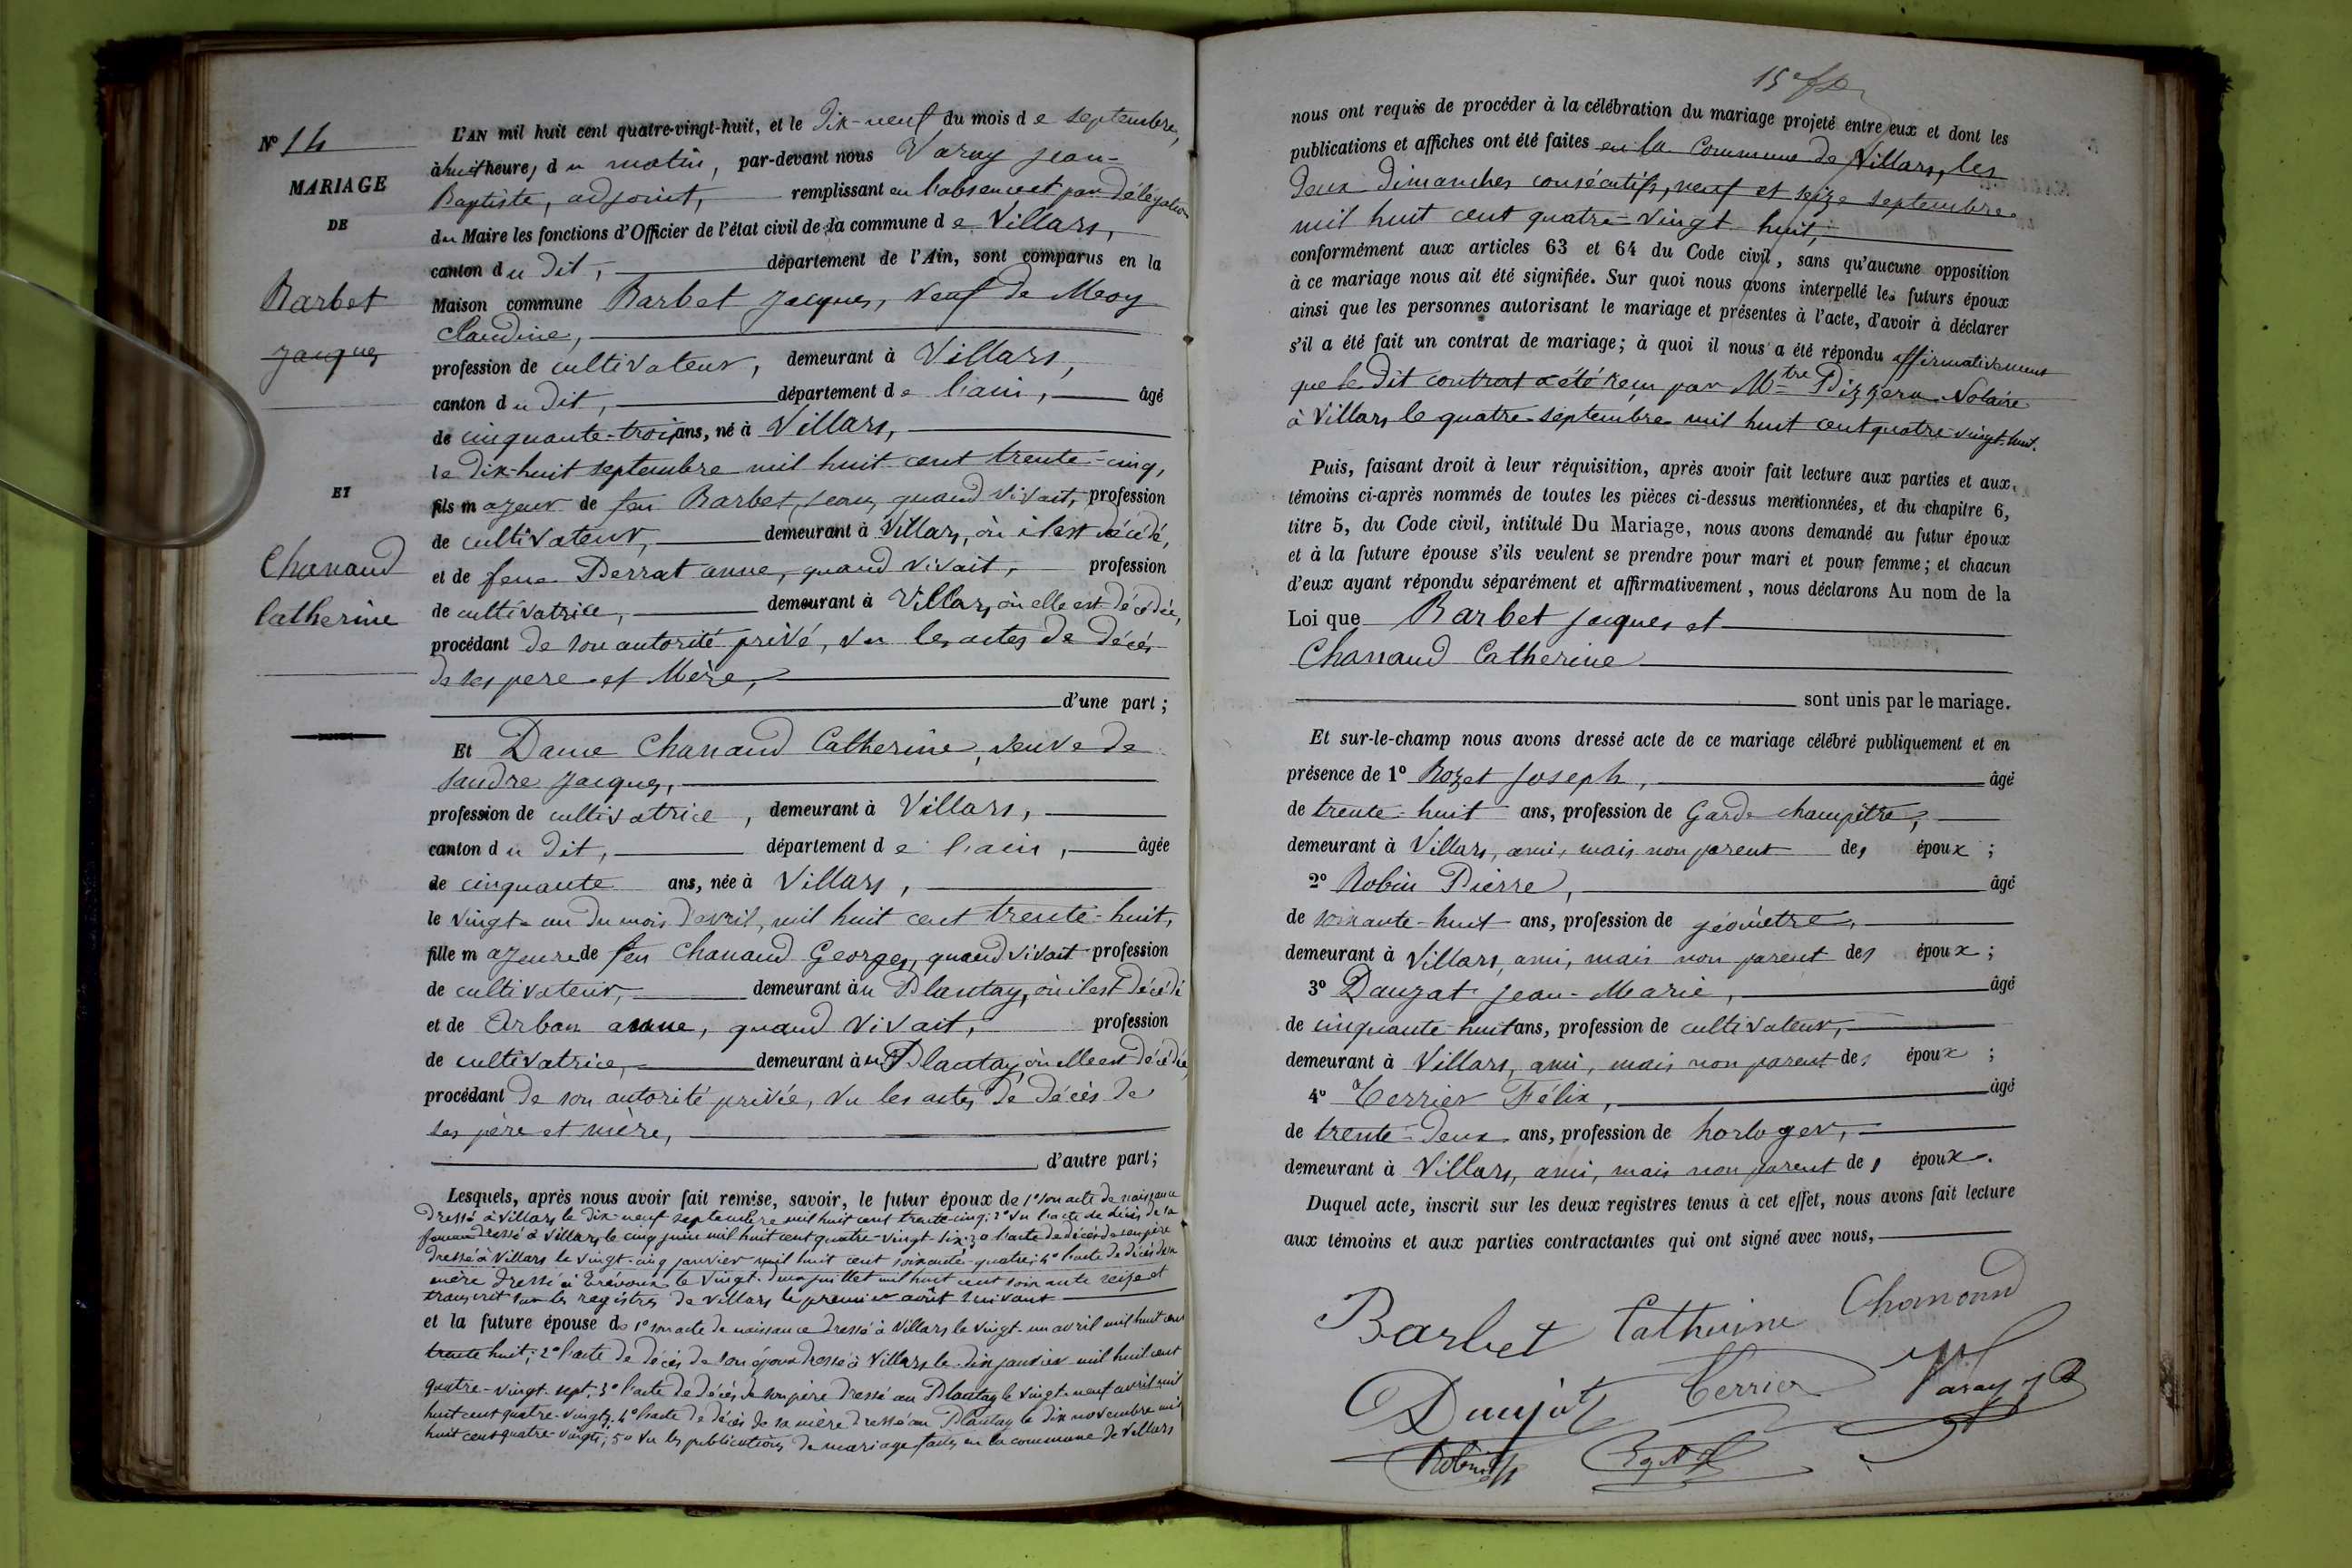 N° 14
MARIAGE
DE
Barbet
Jacques
ET
Chanaud
Catherine
L'AN mil huit cent quatre-vingt-huit, et le dix-neuf du mois de septembre,
à huit heures du matin, par-devant nous Varay Jean-
Baptiste, adjoint, remplissant en l'absence et par délégation
du Maire les fonctions d'Officier de l'état civil de la commune de Villars,
canton du dit, département de l'Ain, sont comparus en la
Maison commune Barbet Jacques, veuf de
Claudine,
profession de cultivateur, demeurant à Villars,
canton du dit, département de l'ain, âgé
de cinquante-trois ans, né à Villars,
le dix-huit septembre mil huit cent trente-cinq,
fils majeur de feu Barbet, Jean, quand vivait, profession
de cultivateur, demeurant à Villars, où il est décédé,
et de feue Perrat anne, quand vivait, profession
de cultivatrice, demeurant à Villars, où elle est décédée,
procédant de son autorité privé, vu les actes de décès
de ses pere et Mère,
d'une part ;
Et Dame Chanaud Catherine, veuve de
Jandre Jacques,
profession de cultivatrice, demeurant à Villars,
canton du dit, département de l'ain, âgée
de cinquante ans, née à Villars,
le vingt-un du mois d'avril, mil huit cent trente-huit,
fille majeure de feu Chanaud Georges, quand vivait profession
de cultivateur, demeurant au Plantay, où il est décédé
et de Arban anne, quand vivait, profession
de cultivatrice, demeurant au Plantay, où elle est décédée,
procédant de son autorité privée, vu les actes de décès de
ses père et mère,
d'autre part;
Lesquels, après nous avoir fait remise, savoir, le futur époux de 1° son acte de naissance
dressé à Villars le dix-neuf septembre mil huit cent trente-cinq; 2° vu l'acte de décès de sa
femme dressé à Villars, le cinq juin mil huit cent quatre-vingt-six; 3° l'acte de décès de son père
dressé à Villars le vingt-cinq janvier mil huit cent soixante-quatre; 4° l'acte de décès de sa
mère dressé à Trévoux le vingt-deux juillet mil huit cent soixante seize et
transcrit sur les registres de Villars le premier août suivant
et la future épouse de 1° son acte de naissance dressé à Villars le vingt-un avril mil huit cent
trente huit; 2° l'acte de décès de son époux dressé à Villars le dix janvier mil huit cent
quatre-vingt-sept; 3° l'acte de décès de son père dressé au Plantay le vingt-neuf avril mil
huit cent quatre-vingts; 4° l'acte de décès de sa mère dressé au Plantay le dix novembre mil
huit cent quatre-vingts; 5° vu les publications de mariage faites en la commune de Villars
15e
nous ont requis de procéder à la célébration du mariage projeté entre eux et dont les
publications et affiches ont été faites en la Commune de Villars, les
deux dimanches consécutifs, neuf et seize septembre
mil huit cent quatre-vingt huit,
conformément aux articles 63 et 64 du Code civil, sans qu'aucune opposition
à ce mariage nous ait été signifiée. Sur quoi nous avons interpellé les futurs époux
ainsi que les personnes autorisant le mariage et présentes à l'acte, d'avoir à déclarer
s'il a été fait un contrat de mariage; à quoi il nous a été répondu affirmativement
que le dit contrat a été reçu par Mtre Notaire
à Villars le quatre septembre mil huit cent quatre-vingt-huit.
Puis, faisant droit à leur réquisition, après avoir fait lecture aux parties et aux
témoins ci-après nommés de toutes les pièces ci-dessus mentionnées, et du chapitre 6,
titre 5, du Code civil, intitulé Du Mariage, nous avons demandé au futur époux
et à la future épouse s'ils veulent se prendre pour mari et pour femme; et chacun
d'eux ayant répondu séparément et affirmativement, nous déclarons Au nom de la
Loi que Barbet Jacques et
Chanaud Catherine
sont unis par le mariage.
Et sur-le-champ nous avons dressé acte de ce mariage célébré publiquement et en
présence de 1° Rozet Joseph, âgé
de trente-huit ans, profession de Garde champêtre,
demeurant à Villars, ami, mais non parent des époux ;
2° Robin Pierre, âgé
de soixante-huit ans, profession de géomètre,
demeurant à Villars, ami, mais non parent des époux ;
3° Dauzat Jean-Marie, âgé
de cinquante-huit ans, profession de cultivateur,
demeurant à Villars, ami, mais non parent des époux ;
4° Terrier Félix, âgé
de trente-deux ans, profession de horloger,
demeurant à Villars, ami, mais non parent des époux.
Duquel acte, inscrit sur les deux registres tenus à cet effet, nous avons fait lecture
aux témoins et aux parties contractantes qui ont signé avec nous,
Barbet Catherine Chanaud
Terrier Varay
Robin